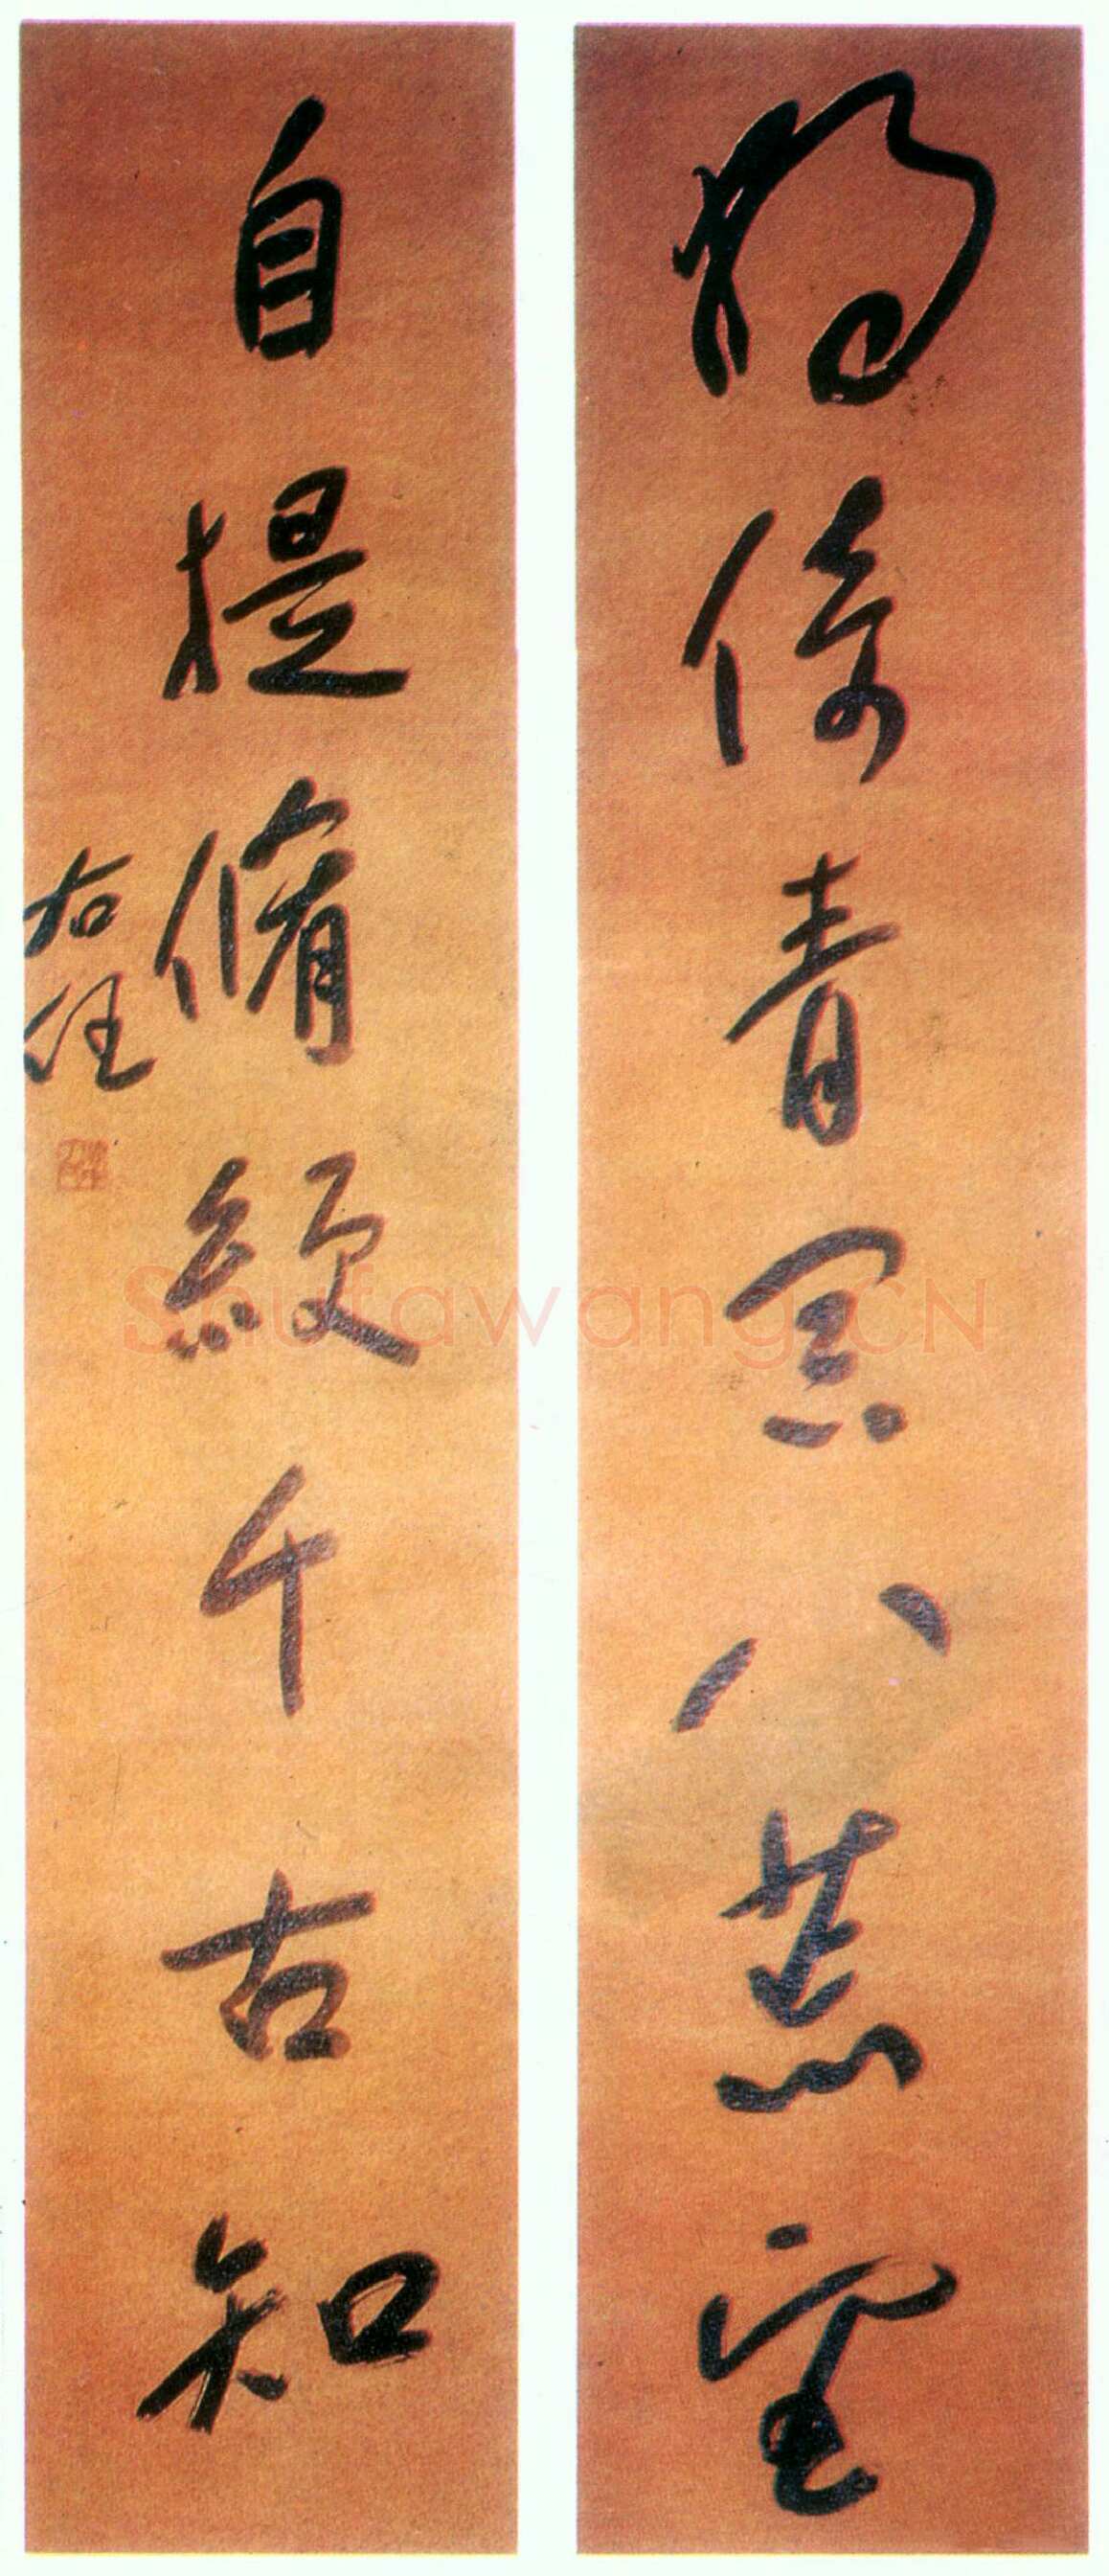 獨倚青冥八荒窄
自提脩綆千古知
右任
Shufawang.CN